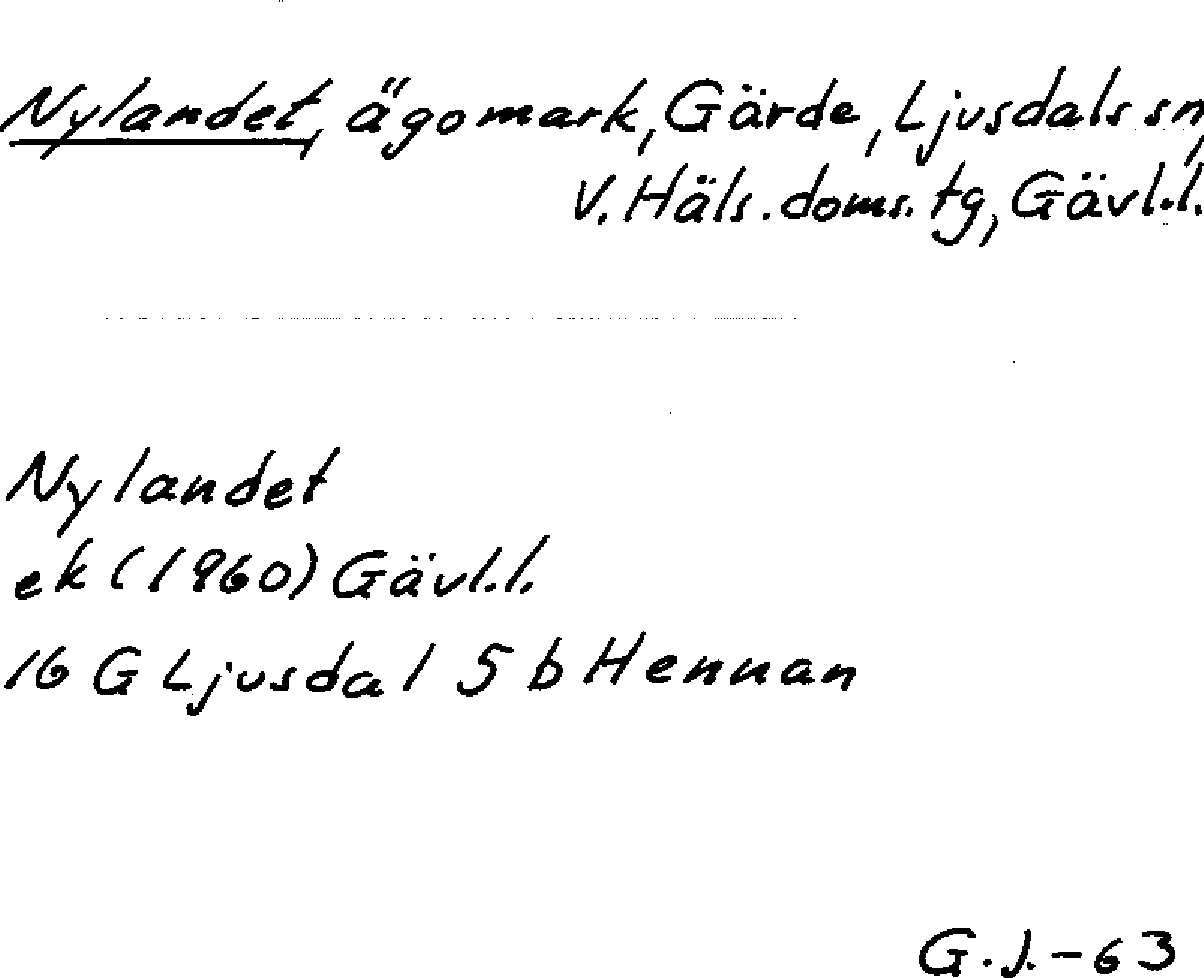 Nylandet, ägomark, Gärde, Ljusdals sn,
V. Häls. doms. tg, Gävl.l.
Nylandet
ek (1960) Gävl.l.
16 G Ljusdal 5 b Hennan
G.J.-63